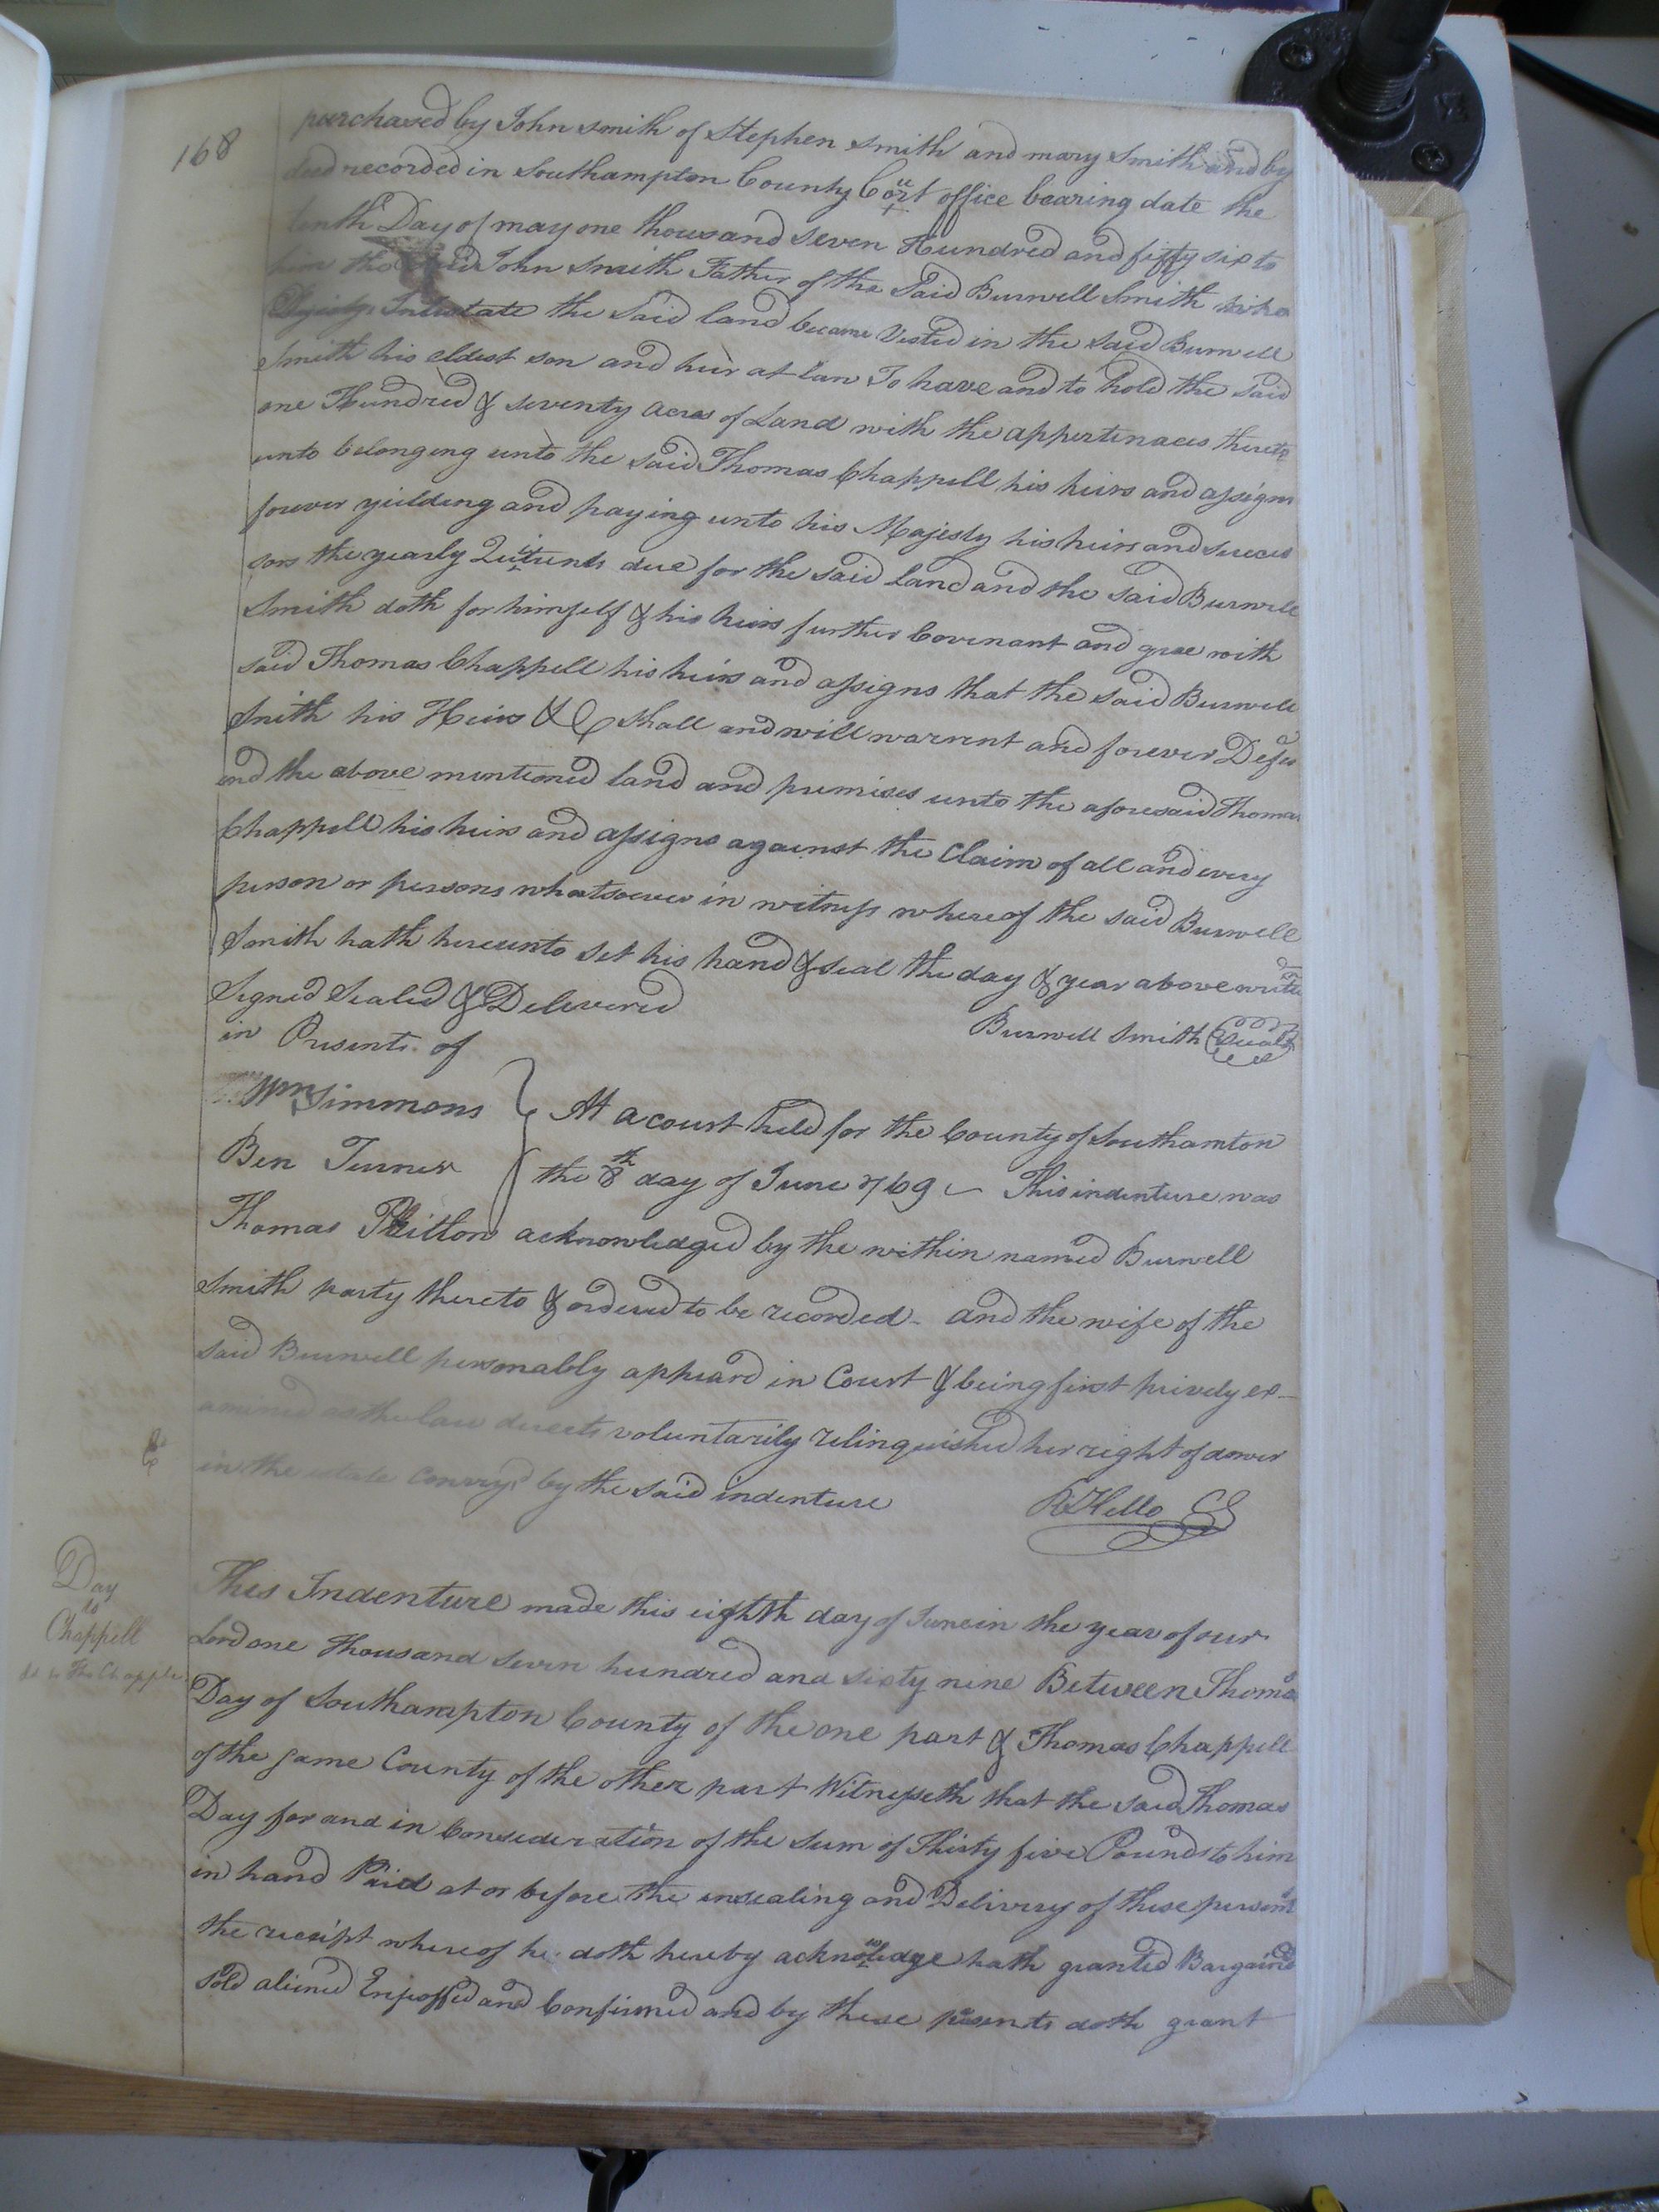 168
purchased by John smith of Stephen Smith and mary Smith and by
deed recorded in Southampton County Court office bearing date the
tenth Day of may one thousand seven Hundred and fifty six to
him the said John Smith Father of the said Burwell Smith who
Dyeing Intestate the said land became Vested in the said Burwell
Smith his eldest son and heir at law To have and to hold the said
one Hundred & seventy acres of Land with the appertenaces thereto
unto belonging unto the said Thomas Chappell his heirs and assigns
forever yielding and paying unto his Majesty his heirs and succes
sors the yearly Quitrents due for the said land and the said Burwell
Smith doth for himself & his heirs further Covenant and gree with
said Thomas Chappell his heirs and assigns that the said Burwell
Smith his Heirs &C shall and will warrent and forever Defe
end the above mentioned land and premises unto the aforesaid Thomas
Chappell his heirs and assigns against the Claim of all and every
person or persons whatsoever in witness whereof the said Burwell
Smith hath hereunto set his hand & seal the day & year above written
Signed Sealed & Delivered
in Presents of
Burwell Smith Seal
Wm Simmons
At a court held for the County of Southamton
Ben Turner
the 8th day of June 1769 This indenture was
Thomas acknowledged by the within named Burwell
Smith party thereto & ordered to be recorded - and the wife of the
said Burwell personably appeard in Court & being first privily ex-
amined as the law directs voluntarily relinquished her right of dower
in the estate Convey'd by the said indenture
R Kello CS
Day
to
Chappell
This Indenture made this eighth day of June in the year of our
Lord one Thousand seven hundred and sixty nine Between Thomas
Day of Southampton County of the one part & Thomas Chappell
of the same County of the other part Witnesseth that the said Thomas
Day for and in Consideration of the Sum of Thirty five Pounds to him
in hand Paid at or before the ensealing and Delivery of these presents
the receipt whereof he doth hereby acknowledge hath granted Bargaind
Sold aliened Enfoffed and Confirmed and by these presents doth grant